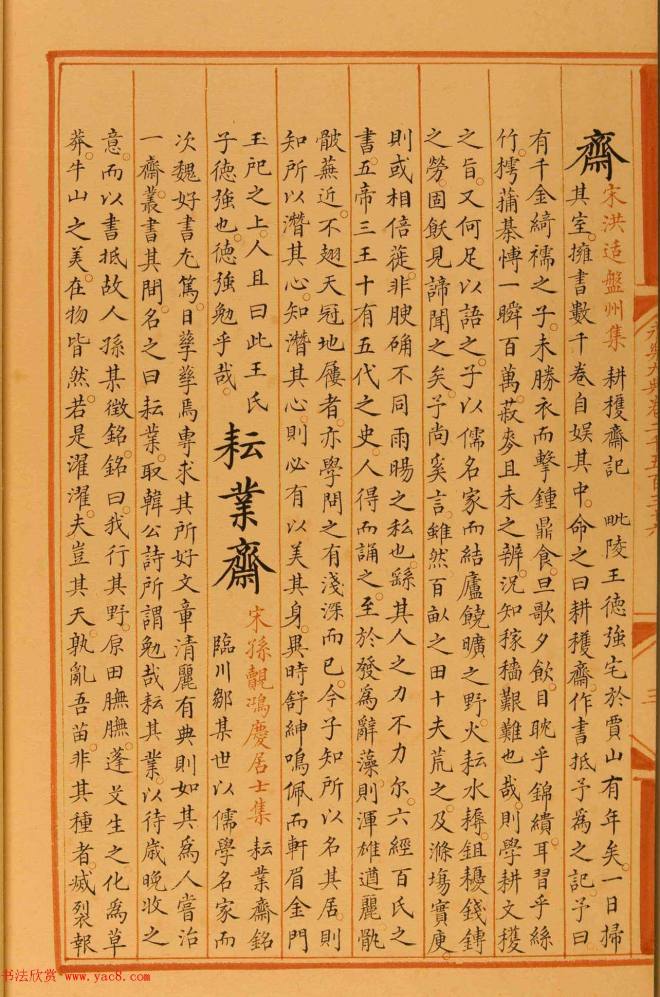 永樂大典卷二千五百三十六
三
齋 宋洪适盤州集 耕穫齋記 毗陵王德強宅於賈山有年矣一日掃
其室擁書數千卷自娱其中命之曰耕穫齋作書抵予為之記予曰
有千金綺襦之子未勝衣而擊鍾鼎食旦歌夕飲目眈乎錦繢耳習乎絲
竹樗蒱棊慱一瞬百萬菽麥且未之辨況知稼穡艱難也哉則學耕文穫
之旨又何足以語之子以儒名家而結廬饒曠之野火耘水耨鉏耰錢鏄
之勞固飫見諦聞之矣予尚奚言雖然百畝之田十夫荒之及滌塲實庾
則或相倍蓰非腴确不同雨暘之私也繇其人之力不力尔六經百氏之
書五帝三王十有五代之史人得而誦之至於發為辭藻則渾雄遒麗骫
骳蕪近不翅天冠地屨者亦學問之有淺深而已今子知所以名其居則
知所以潛其心知潛其心則必有以美其身異時舒紳鳴佩而軒眉金門
玉戺之上人且曰此王氏
子德強也德強勉乎哉 耘業齋 宋孫覿鴻慶居士集 耘業齋銘
臨川鄒某世以儒學名家而
次魏好書尤篤日孳孳焉專求其所好文章清麗有典則如其為人嘗治
一齋叢書其間名之曰耘業取韓公詩所謂勉哉耘其業以待歲晚收之
意而以書抵故人孫某徵銘銘曰我行其野原田膴膴蓬艾生之化為草
莽牛山之美在物皆然若是濯濯夫豈其天孰亂吾苗非其種者烕裂報
书法欣赏 www.yac8.com